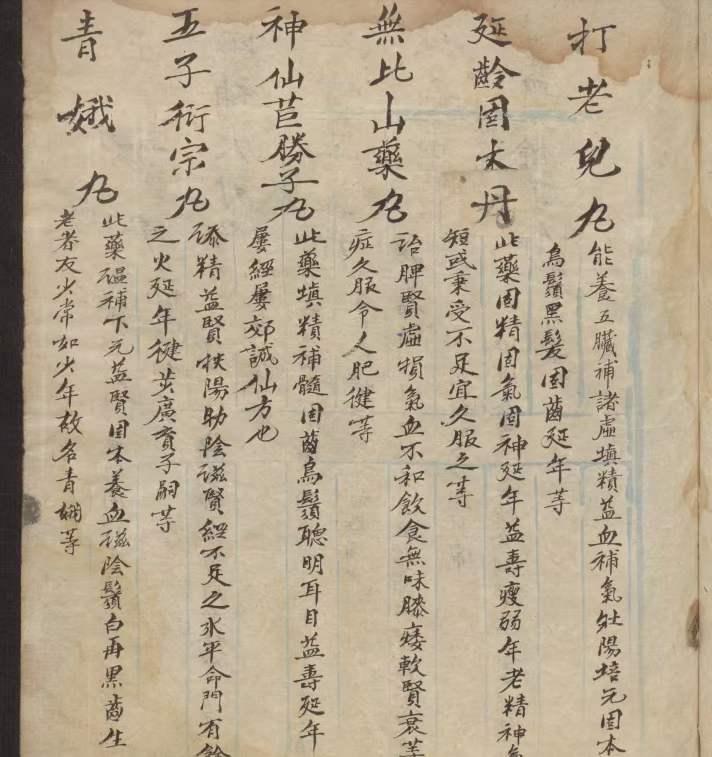 打老兒丸
能養五臟補諸虛填精益血補氣壯陽培元固本
烏鬚黑髮固齒延年等
延齡固本丹
此藥固精固氣固神延年益壽瘦弱年老精神氣
短或秉受不足宜久服之等
無比山藥丸
治脾腎虛損氣血不和飲食無味膝痿軟腎衰等
症久服令人肥健等
神仙苣勝子丸
此藥填精補髓固齒烏鬚聰明耳目益壽延年
屢經屢効誠仙方也
五子衍宗丸
添精益腎扶陽助陰滋腎經不足之水平命門有餘
之火延年健廣育子嗣等
青娥丸
此藥温補下元益腎固本養血滋陰鬚白再黑齒生
老者反少常如少年故名青娥等